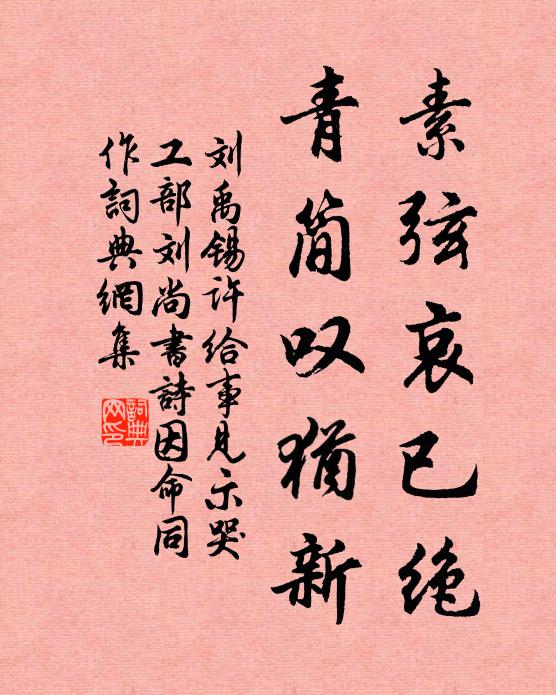 素弦哀已绝
青简叹犹新
刘禹锡许给事見示哭
工部刘尚書詩因命同
作詞典網集
詞典网印